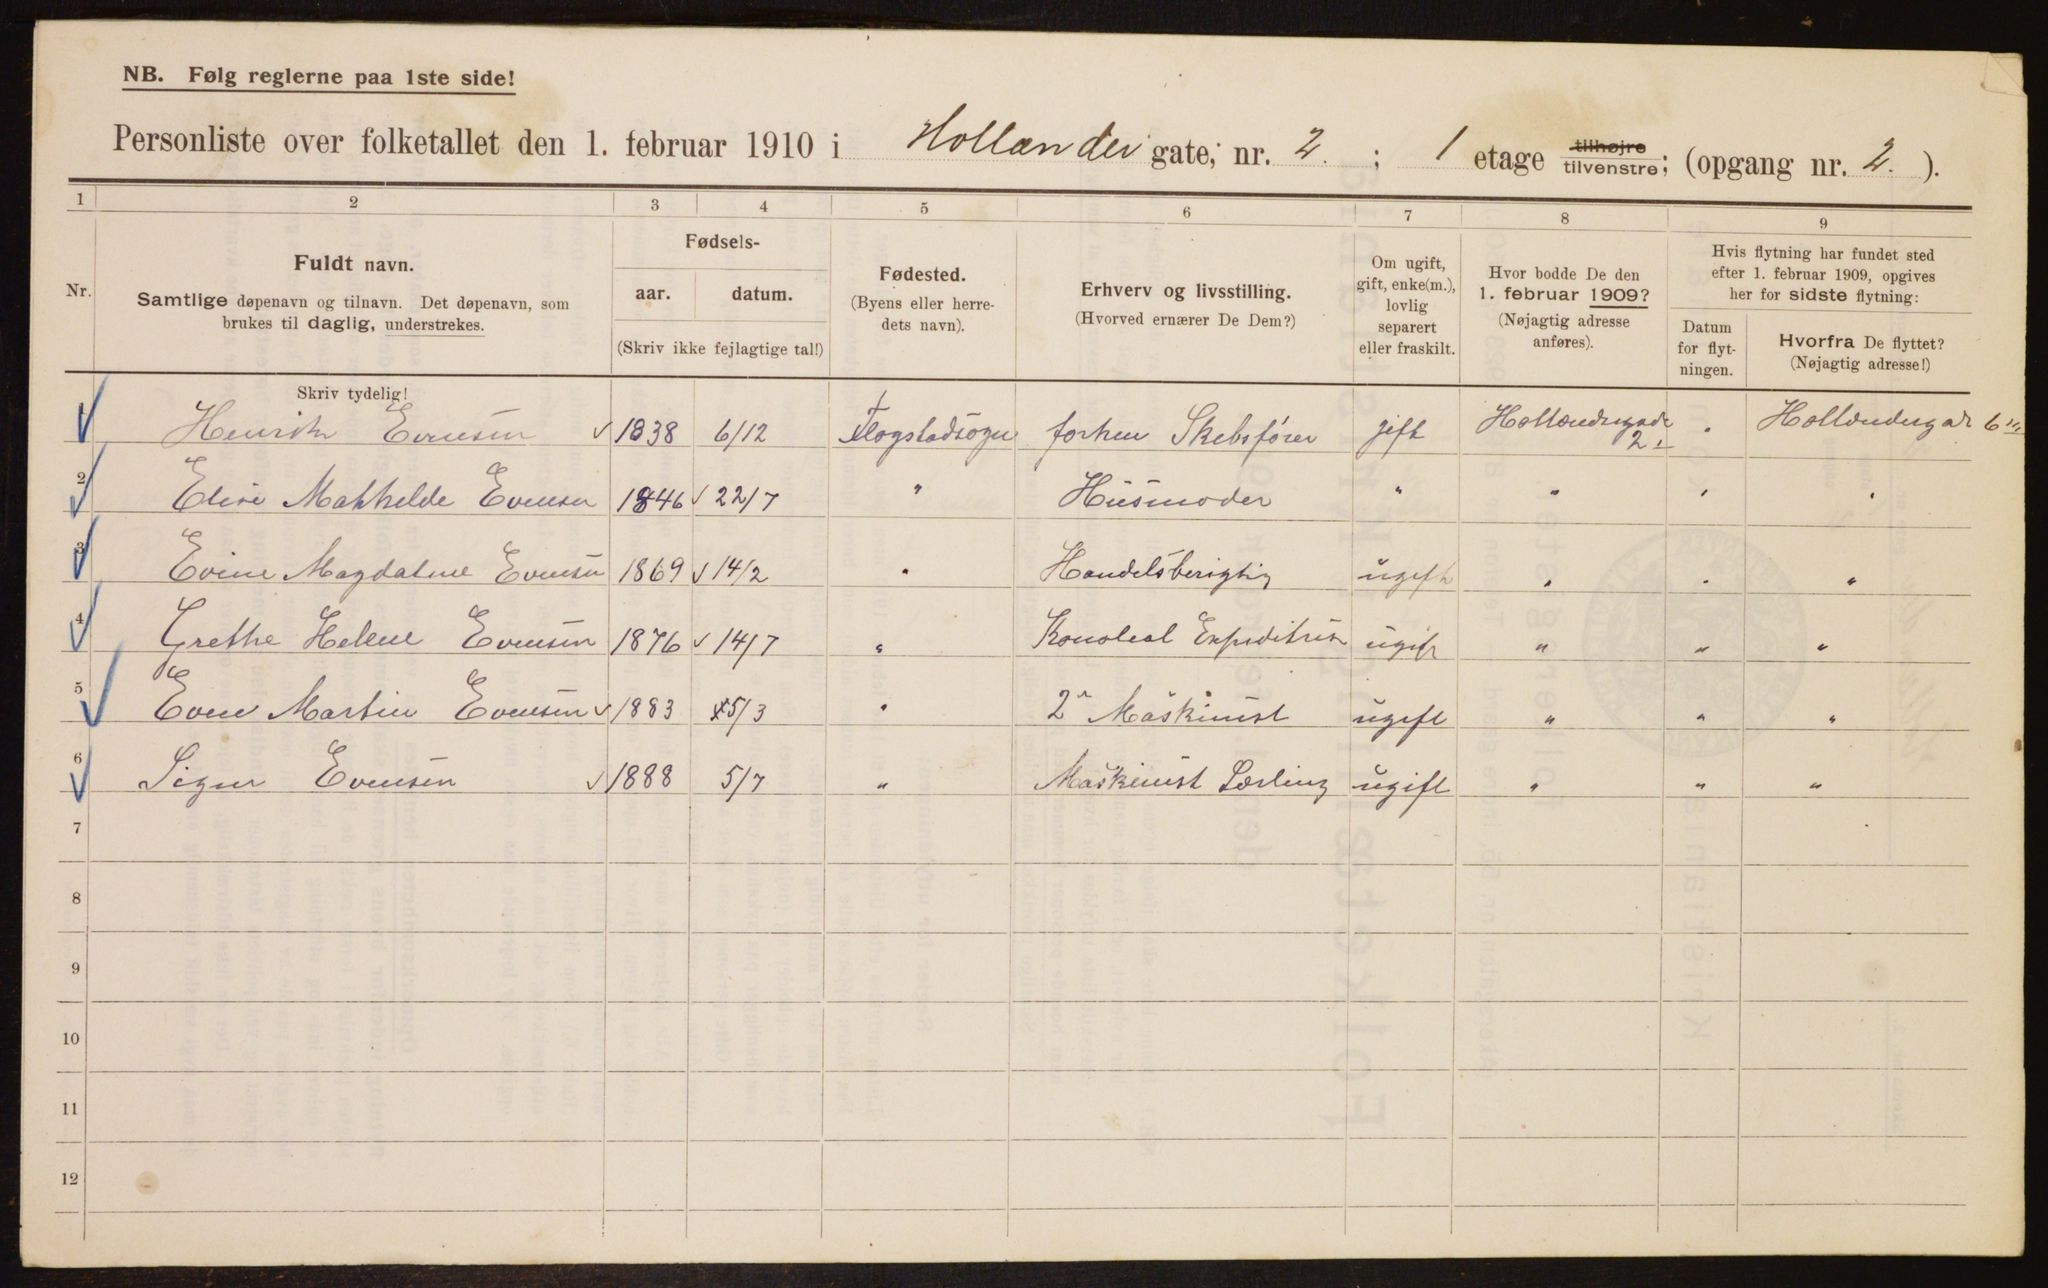 NB. Følg reglerne paa 1ste side!
Personliste over folketallet den 1. februar 1910 i Hollænder gate, nr. 2. ; 1 etage tilhøjre tilvenstre; (opgang nr. 2. ).
1 2 3 4 5 6 7 8 9
Nr.
Fuldt navn.
Samtlige døpenavn og tilnavn. Det døpenavn, som
brukes til daglig, understrekes.
Fødsels-
aar. datum.
(Skriv ikke fejlagtige tal!)
Fødested.
(Byens eller herre-
dets navn).
Erhverv og livsstilling.
(Hvorved ernærer De Dem?)
Om ugift,
gift, enke(m.),
lovlig
separert
eller fraskilt.
Hvor bodde De den
1. februar 1909?
(Nøjagtig adresse
anføres).
Hvis flytning har fundet sted
efter 1. februar 1909, opgives
her for sidste flytning:
Datum
for flyt-
ningen.
Hvorfra De flyttet?
(Nøjagtig adresse!)
Skriv tydelig!
1 Henrik Evensen 1838 6/12 forhen gift 2
2 Elise Mathilde Evensen 1846 22/7 " Husmoder " " " "
3 Evine Magdalene Evensen 1869 14/2 " Handelsberigtig ugift " " "
4 Grethe Helene Evensen 1876 14/7 " ugift " " "
5 Even Martin Evensen 1883 5/3 " 2n Maskinist ugift " " "
6 Evensen 1888 5/7 " Maskinist Lærling ugift " " "
7
8
9
10
11
12